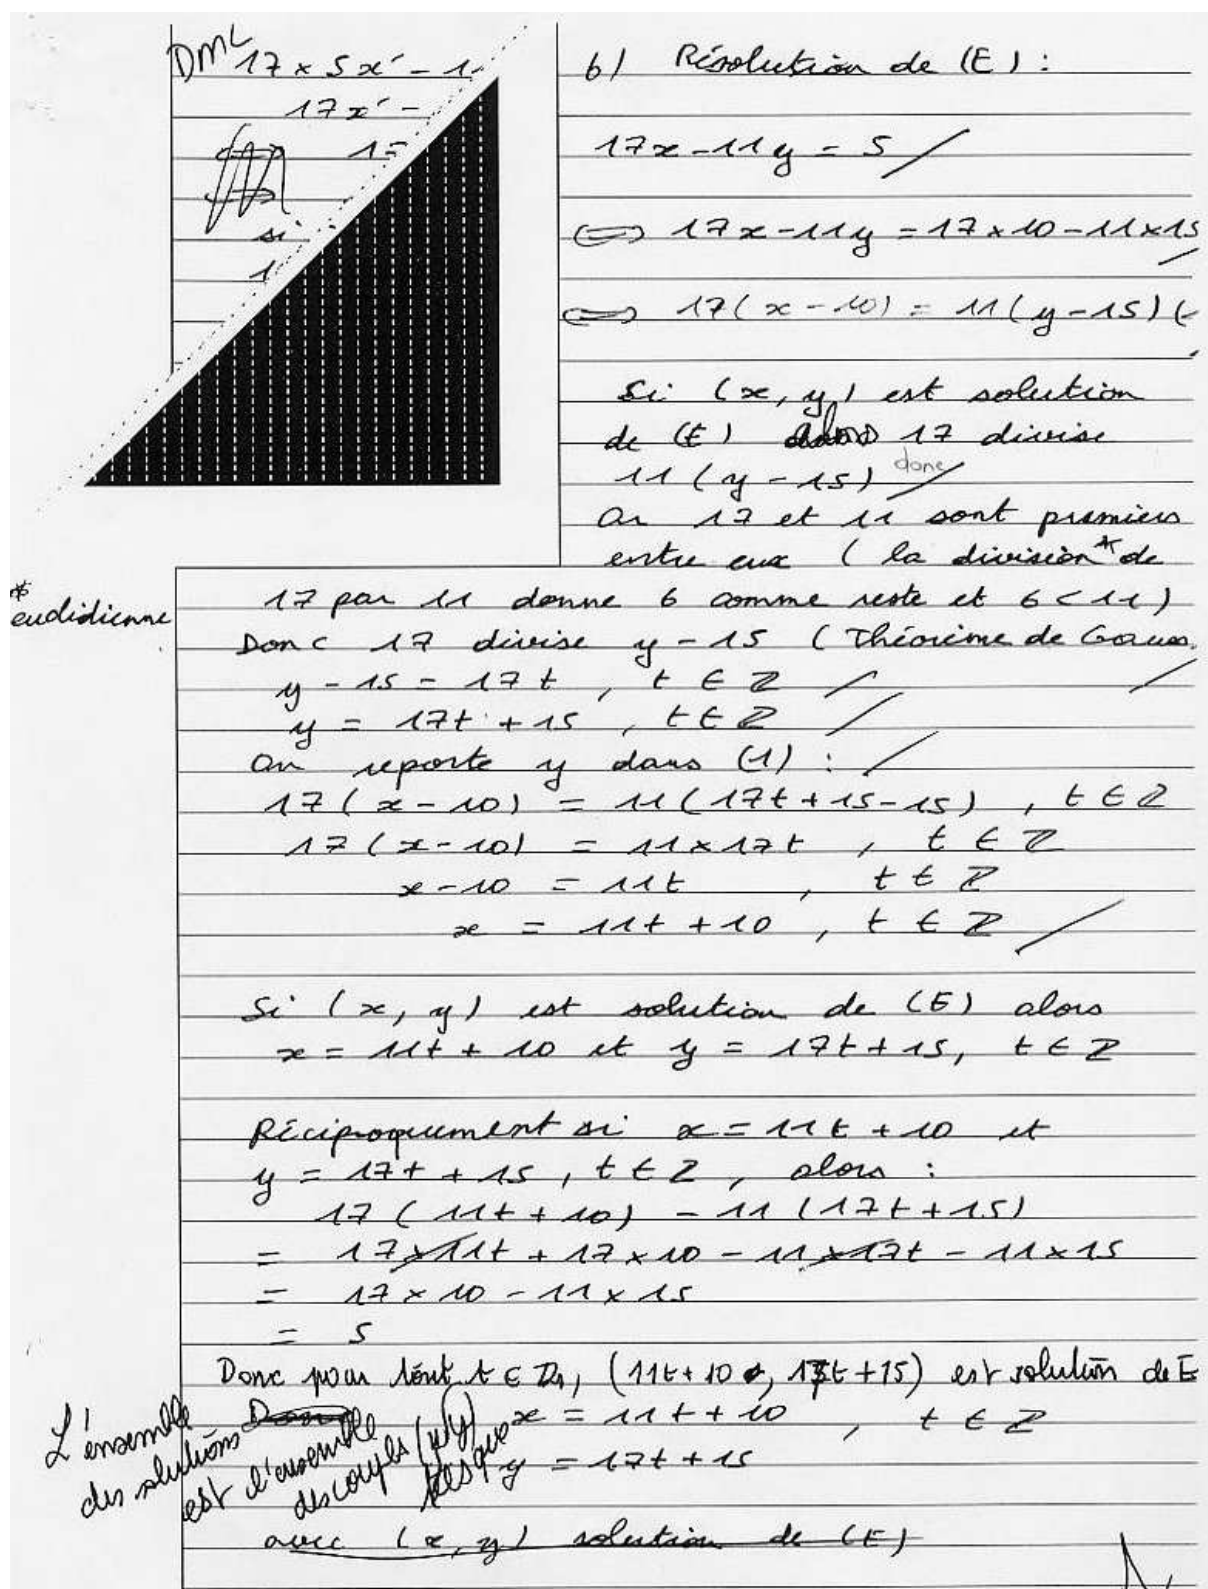 DMC 17 × 5x' - 1
17x' -
1 =
si
1
b) Résolution de (E) :
17x - 11y = 5
⟺ 17x - 11y = 17 × 10 - 11 × 15
⟺ 17(x - 10) = 11(y - 15) (
Si (x, y) est solution
de (E) alors 17 divise
11(y - 15) donc
Or 17 et 11 sont premiers
entre eux (la division* de
* euclidienne
17 par 11 donne 6 comme reste et 6 < 11)
Donc 17 divise y - 15 (Théorème de Gauss.
y - 15 = 17t , t ∈ ℤ
y = 17t + 15 , t ∈ ℤ
On reporte y dans (1) :
17(x - 10) = 11(17t + 15 - 15) , t ∈ ℤ
17(x - 10) = 11 × 17t , t ∈ ℤ
x - 10 = 11t , t ∈ ℤ
x = 11t + 10 , t ∈ ℤ
Si (x, y) est solution de (E) alors
x = 11t + 10 et y = 17t + 15, t ∈ ℤ
Réciproquement si x = 11t + 10 et
y = 17t + 15, t ∈ ℤ, alors :
17(11t + 10) - 11(17t + 15)
= 17 × 11t + 17 × 10 - 11 × 17t - 11 × 15
= 17 × 10 - 11 × 15
= 5
Donc pour tout t ∈ ℤ, (11t + 10, 17t + 15) est solution de E
L'ensemble
des solutions
est l'ensemble
des couples (x, y)
tels que
x = 11t + 10 , t ∈ ℤ
y = 17t + 15
avec (x, y) solution de (E)